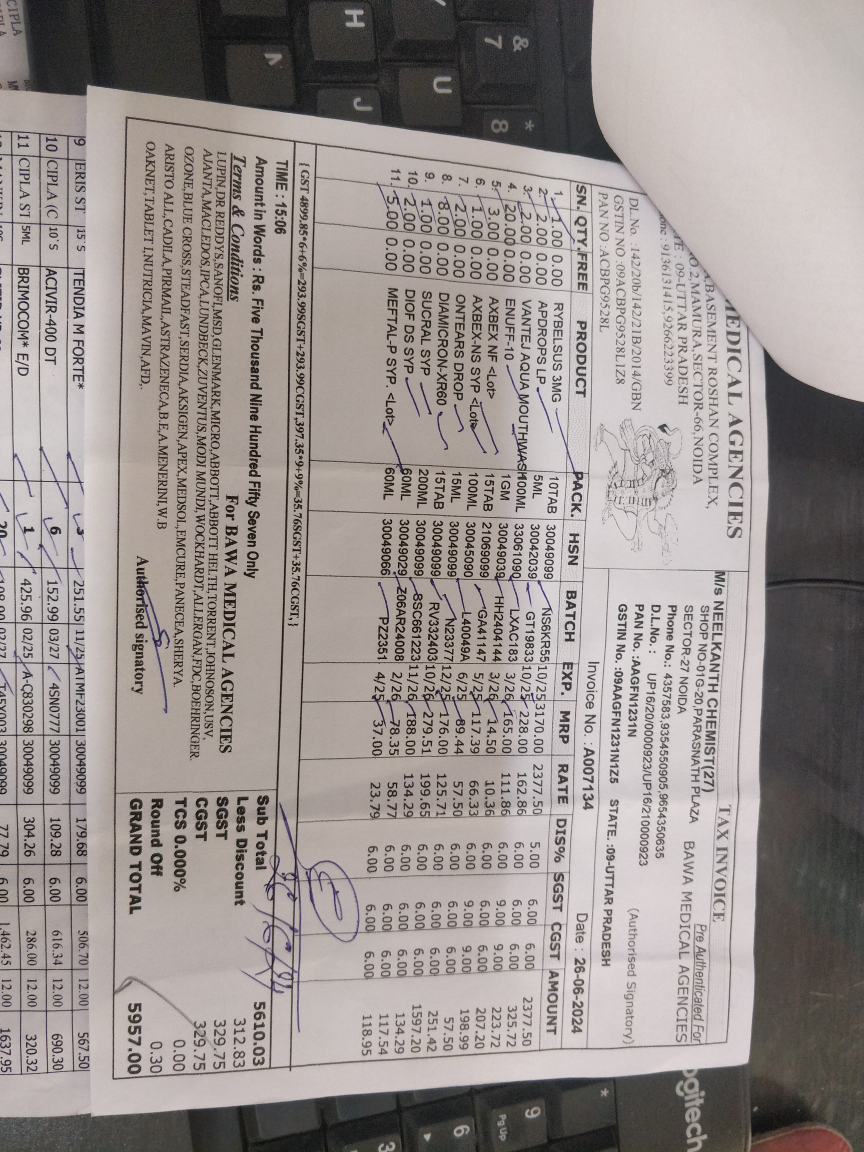 TAX INVOICE
Pre Authenticated For
BAWA MEDICAL AGENCIES
(Authorised Signatory)
MEDICAL AGENCIES
BASEMENT ROSHAN COMPLEX,
NO 2,MAMURA,SECTOR-66,NOIDA
: 09-UTTAR PRADESH
: 9136131415,9266223399
DL.No. :142/20b/142/21B/2014/GBN
GSTIN NO :09ACBPG9528L1Z8
PAN NO :ACBPG9528L
M/s NEELKANTH CHEMIST(27)
SHOP NO-01G-20,PARASNATH PLAZA
SECTOR-27 NOIDA
Phone No.: 4357583,9354550905,9654350635
D.L.No. : UP16/20/0000923/UP16/210000923
PAN No. :AAGFN1231N
GSTIN No. :09AAGFN1231N1Z5 STATE. :09-UTTAR PRADESH
Invoice No. : A007134 Date : 26-06-2024
SN. QTY. FREE PRODUCT PACK. HSN BATCH EXP. MRP RATE DIS% SGST CGST AMOUNT
1. 1.00 0.00 RYBELSUS 3MG 10TAB 30049099 NS6KR55 10/25 3170.00 2377.50 5.00 6.00 6.00 2377.50
2. 2.00 0.00 APDROPS LP 5ML 30042039 GT19833 10/25 228.00 162.86 6.00 6.00 6.00 325.72
3. 2.00 0.00 VANTEJ AQUA MOUTHWASH 100ML 33061090 LXAC183 3/26 165.00 111.86 6.00 9.00 9.00 223.72
4. 20.00 0.00 ENUFF-10 1GM 30049039 HH2404144 3/26 14.50 10.36 6.00 6.00 6.00 207.20
5. 3.00 0.00 AXBEX NF <Lot> 15TAB 21069099 GA41147 5/25 117.39 66.33 6.00 9.00 9.00 198.99
6. 1.00 0.00 AXBEX-NS SYP <Lot> 100ML 30045090 L40049A 6/25 89.44 57.50 6.00 6.00 6.00 57.50
7. 2.00 0.00 ONTEARS DROP 15ML 30049099 N23377 12/25 176.00 125.71 6.00 6.00 6.00 251.42
8. 8.00 0.00 DIAMICRON-XR60 15TAB 30049099 RV332403 10/26 279.51 199.65 6.00 6.00 6.00 1597.20
9. 1.00 0.00 SUCRAL SYP 200ML 30049099 BSC661223 11/26 188.00 134.29 6.00 6.00 6.00 134.29
10. 2.00 0.00 DIOF DS SYP 60ML 30049029 Z06AR24008 2/26 78.35 58.77 6.00 6.00 6.00 117.54
11. 5.00 0.00 MEFTAL-P SYP. <Lot> 60ML 30049066 PZ2351 4/25 37.00 23.79 6.00 6.00 6.00 118.95
{ GST 4899.85*6+6%=293.99SGST+293.99CGST,397.35*9+9%=35.76SGST+35.76CGST,}
TIME : 15:06
Amount in Words : Rs. Five Thousand Nine Hundred Fifty Seven Only
Terms & Conditions
For BAWA MEDICAL AGENCIES
LUPIN,DR REDDYS,SANOFI,MSD,GLENMARK,MICRO,ABBOTT,ABBOTT HELTH,TORRENT,JOHNOSON,USV,
AJANTA,MACLEDOS,IPCA,LUNDBECK,ZUVENTUS,MODI MUNDI,WOCKHARDT,ALLERGAN,FDC,BOEHRINGER
OZONE,BLUE CROSS,STEADFAST,SERDIA,AKSIGEN,APEX,MEDSOL,EMCURE,PANECEA,SHERYA,
ARISTO ALL,CADILA,PIRMAIL,ASTRAZENECA,B.E,A.MENERINI,W.B
OAKNET,TABLET I,NUTRICIA,MAVIN,AFD,.
Authorised signatory
Sub Total 5610.03
Less Discount 312.83
SGST 329.75
CGST 329.75
TCS 0.000% 0.00
Round Off 0.30
GRAND TOTAL 5957.00
9 ERIS ST 15'S TENDIA M FORTE* 3 251.55 11/25 ATMF23001 30049099 179.68 6.00 506.70 12.00 567.50
10 CIPLA (C 10'S ACTIVIR-400 DT 6 152.99 03/27 4SN0777 30049099 109.28 6.00 616.34 12.00 690.30
11 CIPLA ST 5ML BRIMOCOM* E/D 1 425.96 02/25 A-C830298 30049099 304.26 6.00 286.00 12.00 320.32
20 02/27 30049099 77.79 6.00 1,462.45 12.00 1637.95
CIPLA
logitech
&
7
*
8
U
H
J
9
Pg Up
6
3